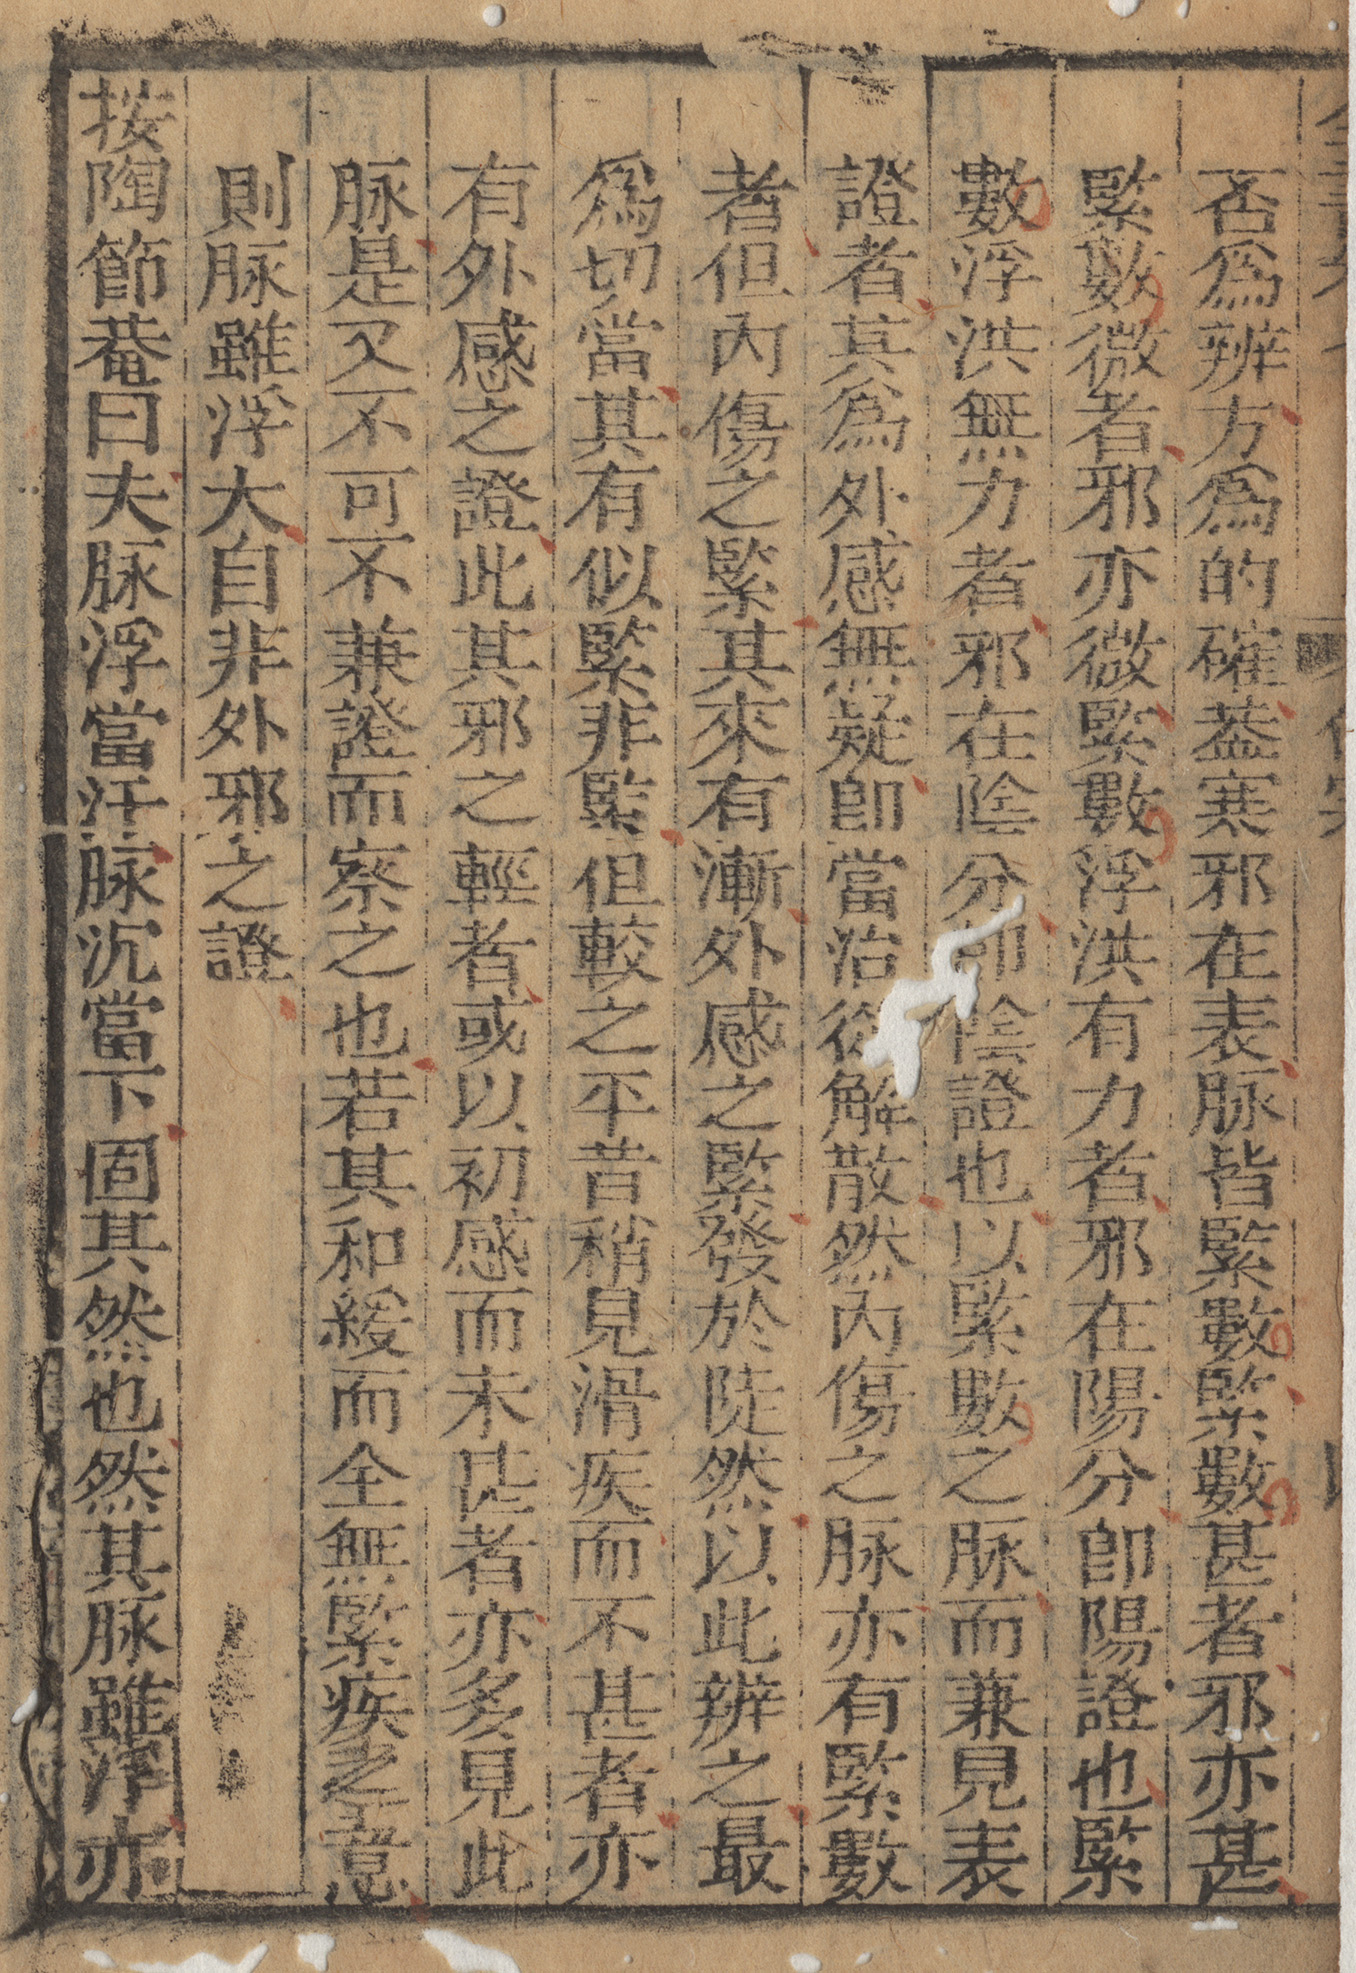 否為辨方為的確葢寒邪在表脉皆緊數緊數甚者邪亦甚
緊數微者邪亦微緊數浮洪有力者邪在陽分卽陽證也緊
數浮洪無力者邪在陰分卽陰證也以緊數之脉而兼見表
證者其為外感無疑卽當治從解散然內傷之脉亦有緊數
者但內傷之緊其來有漸外感之緊發於陡然以此辨之最
為切當其有似緊非緊但較之平昔稍見滑疾而不甚者亦
有外感之證此其邪之輕者或以初感而未甚者亦多見此
脉是又不可不兼證而察之也若其和緩而全無緊疾之意
則脉雖浮大自非外邪之證
按陶節菴曰夫脉浮當汗脉沉當下固其然也然其脉雖浮亦